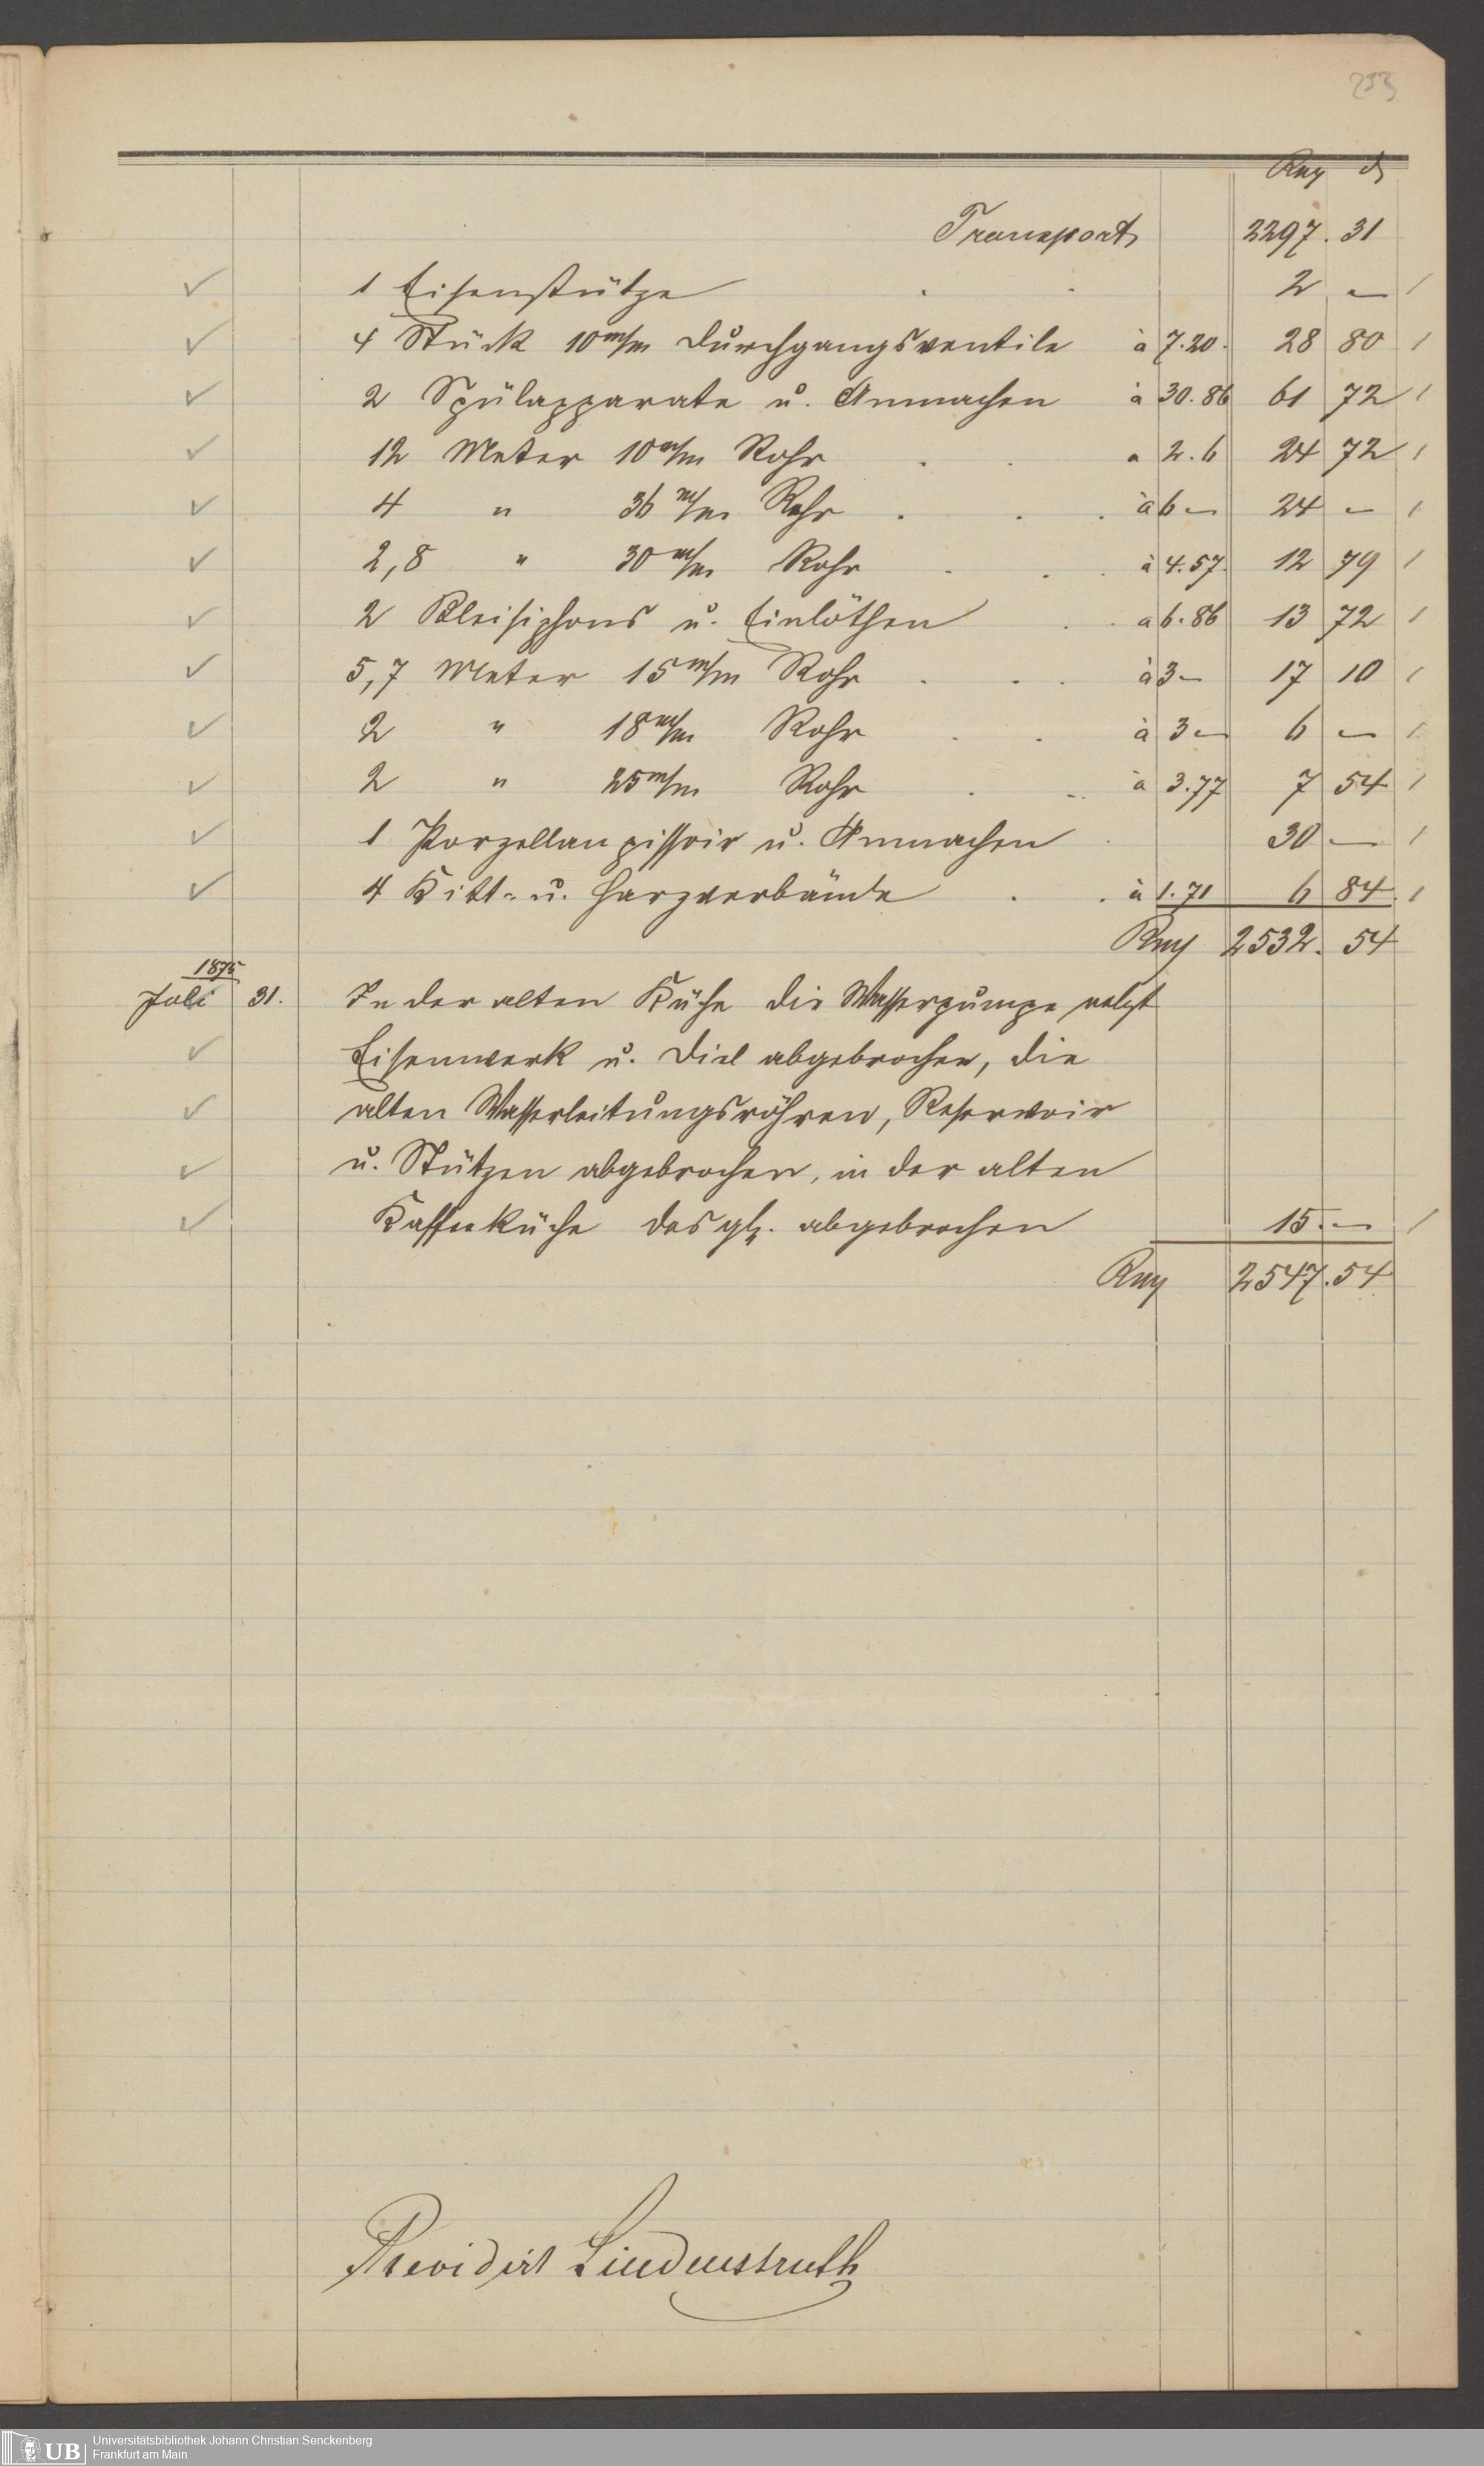 233
Rm ₰
Transport 2297. 31
1 Eisenstütze . . 2 —
4 Stück 10 m/m Durchgangsventile à 7.20. 28 80
2 Spülapparate u. Anmachen à 30.86 61 72
12 Meter 10 m/m Rohr . . a 2.6 24 72
4 " 36 m/m Rohr . . . à 6 — 24 —
2,8 " 30 m/m Rohr . . . à 4.57. 12 79
2 Bleisiphons u. Einlöthen . . a 6.86 13 72
5,7 Meter 15 m/m Rohr . . . à 3 — 17 10
2 " 18 m/m Rohr . . à 3 — 6 —
2 " 25 m/m Rohr . . à 3.77 7 54
1 Porzellanpissoir u. Anmachen . 30 —
4 Kitt- u. Harzverbände . . à 1.71 6 84.
Rm 2532. 54
1875
Juli 31. In der alten Küche die Wasserpumpe nebst
Eisenwerk u. Diel abgebrochen, die
alten Wasserleitungsröhren, Reservoir
u. Stützen abgebrochen, in der alten
Kaffeeküche desgl. abgebrochen 15. —
Rm 2547.54
Revidirt Lindenstruth
UB Universitätsbibliothek Johann Christian Senckenberg
Frankfurt am Main